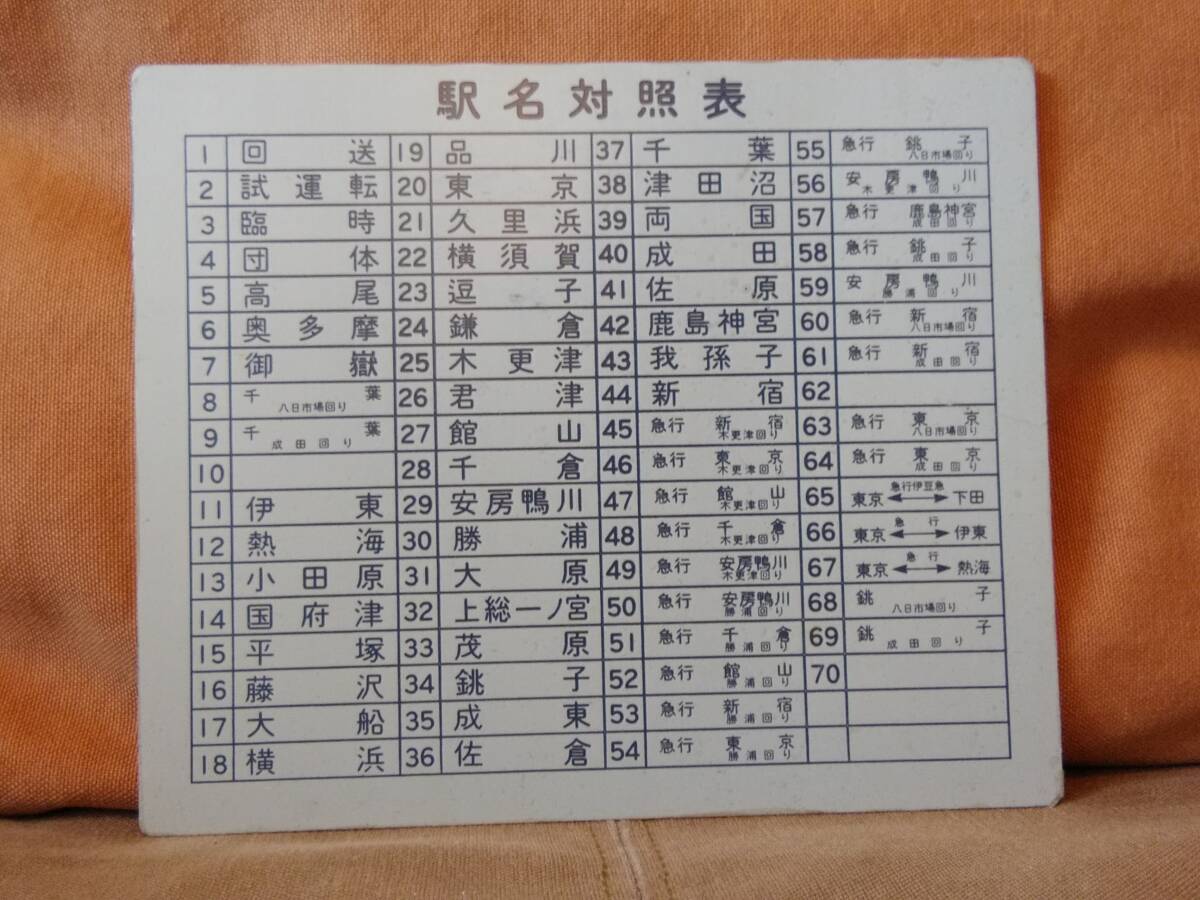 駅名対照表
1 回送 19 品川 37 千葉 55 急行 銚子 八日市場回り
2 試運転 20 東京 38 津田沼 56 安房鴨川 木更津回り
3 臨時 21 久里浜 39 両国 57 急行 鹿島神宮 成田回り
4 団体 22 横須賀 40 成田 58 急行 銚子 成田回り
5 高尾 23 逗子 41 佐原 59 安房鴨川 勝浦回り
6 奥多摩 24 鎌倉 42 鹿島神宮 60 急行 新宿 八日市場回り
7 御嶽 25 木更津 43 我孫子 61 急行 新宿 成田回り
8 千葉 八日市場回り 26 君津 44 新宿 62
9 千葉 成田回り 27 館山 45 急行 新宿 木更津回り 63 急行 東京 八日市場回り
10 28 千倉 46 急行 東京 木更津回り 64 急行 東京 成田回り
11 伊東 29 安房鴨川 47 急行 館山 木更津回り 65 東京 急行伊豆急 下田
12 熱海 30 勝浦 48 急行 千倉 木更津回り 66 東京 急行 伊東
13 小田原 31 大原 49 急行 安房鴨川 木更津回り 67 東京 急行 熱海
14 国府津 32 上総一ノ宮 50 急行 安房鴨川 勝浦回り 68 銚子 八日市場回り
15 平塚 33 茂原 51 急行 千倉 勝浦回り 69 銚子 成田回り
16 藤沢 34 銚子 52 急行 館山 勝浦回り 70
17 大船 35 成東 53 急行 新宿 勝浦回り
18 横浜 36 佐倉 54 急行 東京 勝浦回り